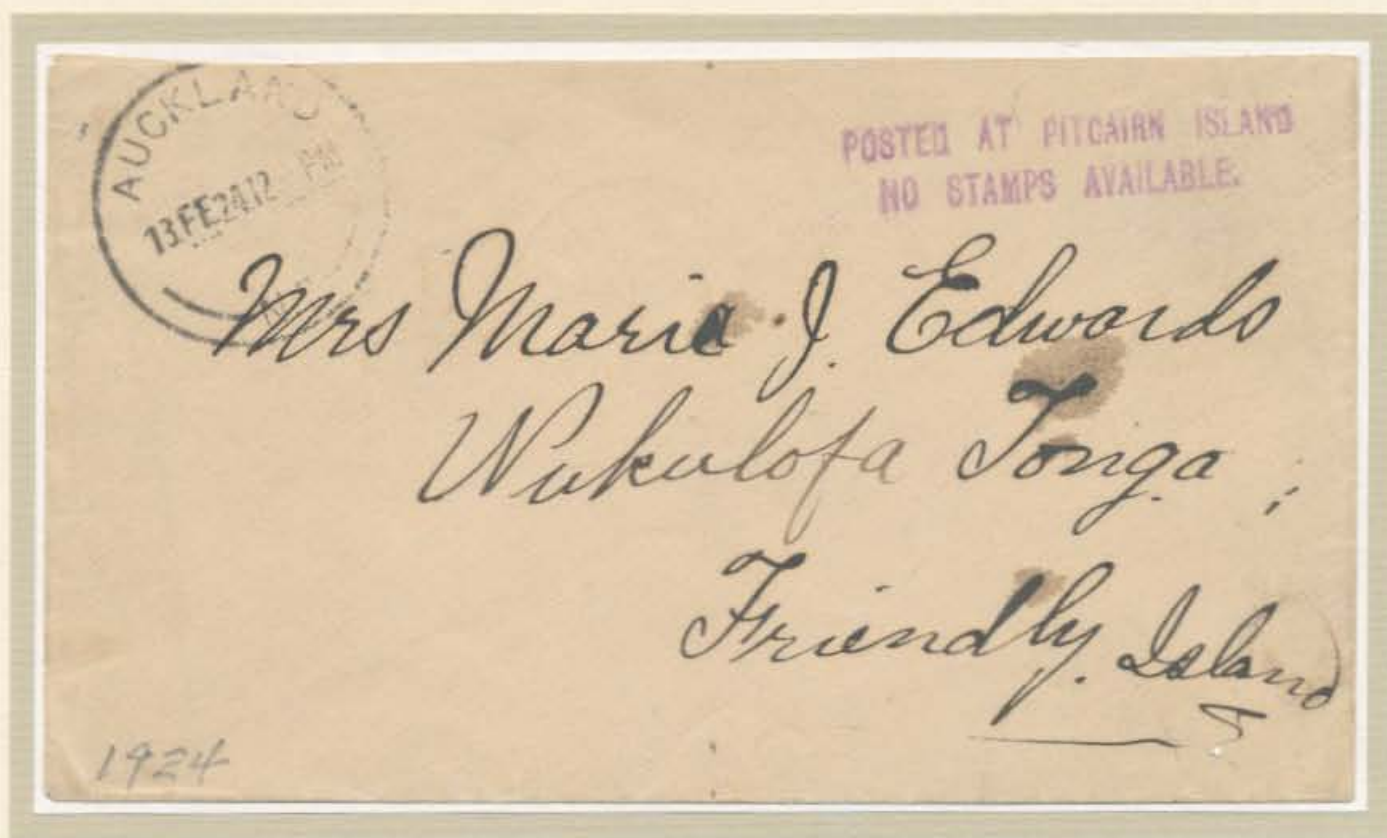 AUCKLAND
13 FE 24 12 PM
POSTED AT PITCAIRN ISLAND
NO STAMPS AVAILABLE.
Mrs Maria J. Edwards
Nukulofa Tonga
Friendly. Island
1924